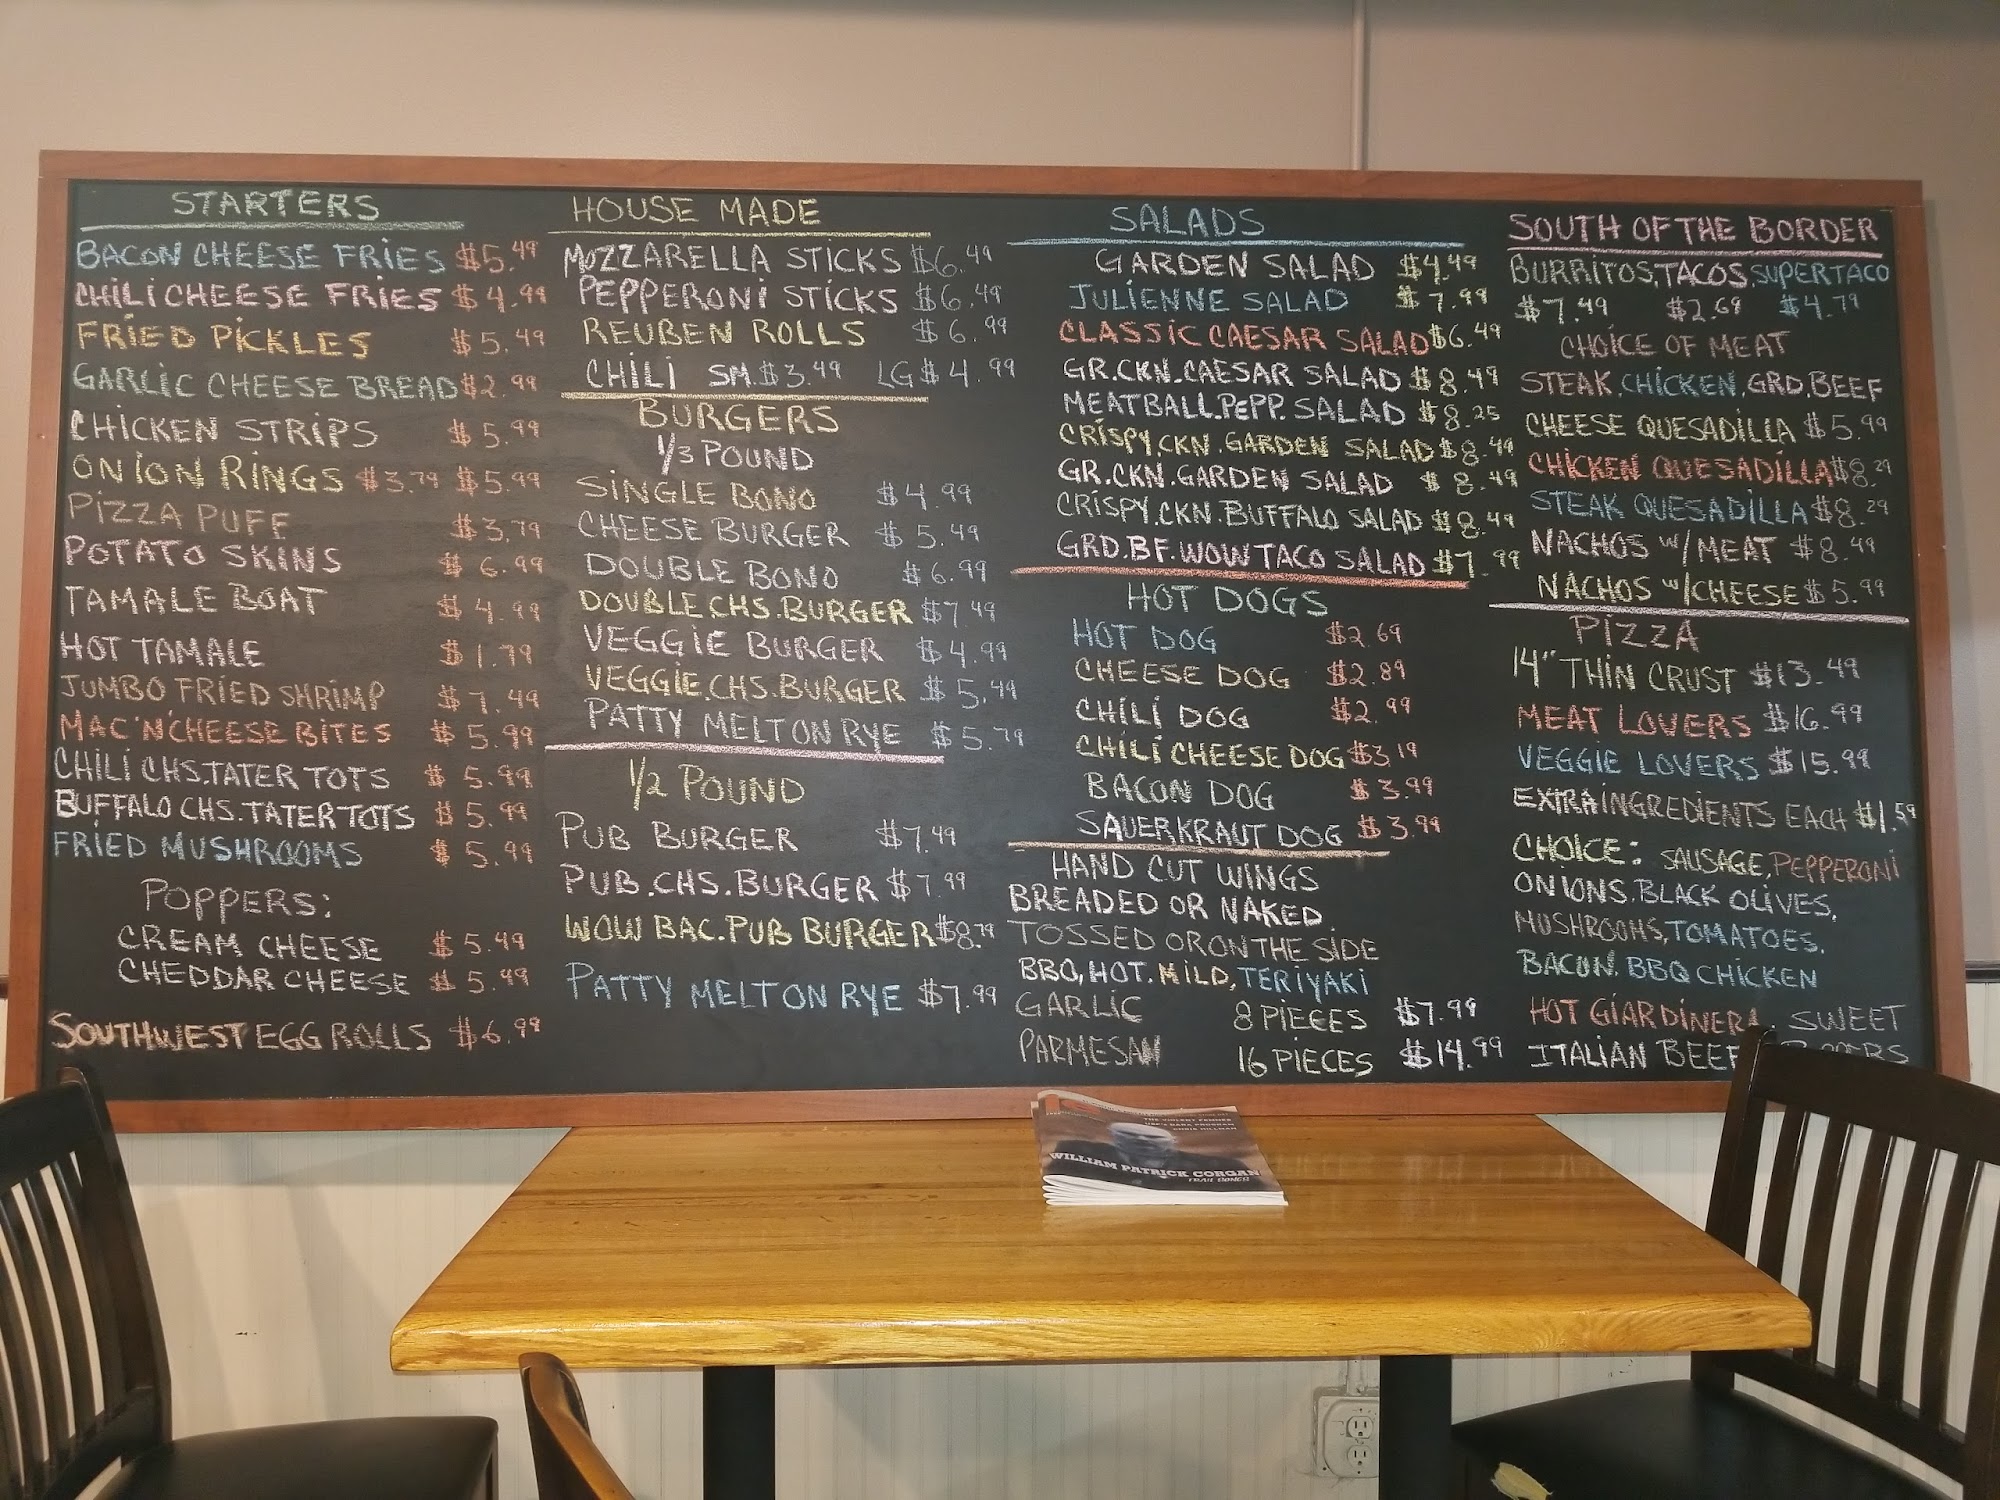 STARTERS
BACON CHEESE FRIES $5.49
CHILI CHEESE FRIES $4.99
FRIED PICKLES $5.49
GARLIC CHEESE BREAD $2.99
CHICKEN STRIPS $5.99
ONION RINGS $3.79 $5.99
PIZZA PUFF $3.79
POTATO SKINS $6.99
TAMALE BOAT $4.99
HOT TAMALE $1.79
JUMBO FRIED SHRIMP $7.49
MAC'N'CHEESE BITES $5.99
CHILI CHS. TATER TOTS $5.99
BUFFALO CHS. TATER TOTS $5.99
FRIED MUSHROOMS $5.99
POPPERS:
CREAM CHEESE $5.49
CHEDDAR CHEESE $5.49
SOUTHWEST EGG ROLLS $6.99
HOUSE MADE
MOZZARELLA STICKS $6.49
PEPPERONI STICKS $6.49
REUBEN ROLLS $6.99
CHILI SM. $3.49 LG $4.99
BURGERS
1/3 POUND
SINGLE BONO $4.99
CHEESE BURGER $5.49
DOUBLE BONO $6.99
DOUBLE.CHS.BURGER $7.49
VEGGIE BURGER $4.99
VEGGIE.CHS.BURGER $5.49
PATTY MELT ON RYE $5.79
1/2 POUND
PUB BURGER $7.49
PUB.CHS.BURGER $7.99
WOW BAC.PUB BURGER $8.79
PATTY MELT ON RYE $7.99
SALADS
GARDEN SALAD $4.49
JULIENNE SALAD $7.99
CLASSIC CAESAR SALAD $6.49
GR.CKN.CAESAR SALAD $8.49
MEATBALL.PEPP. SALAD $8.25
CRISPY.CKN.GARDEN SALAD $8.49
GR.CKN.GARDEN SALAD $8.49
CRISPY.CKN.BUFFALO SALAD $8.49
GRD.BF.WOW TACO SALAD $7.99
HOT DOGS
HOT DOG $2.69
CHEESE DOG $2.89
CHILI DOG $2.99
CHILI CHEESE DOG $3.19
BACON DOG $3.99
SAUERKRAUT DOG $3.99
HAND CUT WINGS
BREADED OR NAKED
TOSSED OR ON THE SIDE
BBQ, HOT, MILD, TERIYAKI
GARLIC 8 PIECES $7.99
PARMESAN 16 PIECES $14.99
SOUTH OF THE BORDER
BURRITOS, TACOS, SUPER TACO
$7.49 $2.69 $4.79
CHOICE OF MEAT
STEAK, CHICKEN, GRD.BEEF
CHEESE QUESADILLA $5.99
CHICKEN QUESADILLA $8.29
STEAK QUESADILLA $8.29
NACHOS w/MEAT $8.49
NACHOS w/CHEESE $5.99
PIZZA
14" THIN CRUST $13.49
MEAT LOVERS $16.99
VEGGIE LOVERS $15.99
EXTRA INGREDIENTS EACH $1.59
CHOICE: SAUSAGE, PEPPERONI
ONIONS, BLACK OLIVES,
MUSHROOMS, TOMATOES,
BACON, BBQ CHICKEN
HOT GIARDINERA, SWEET
ITALIAN BEEF
WILLIAM PATRICK CORGAN